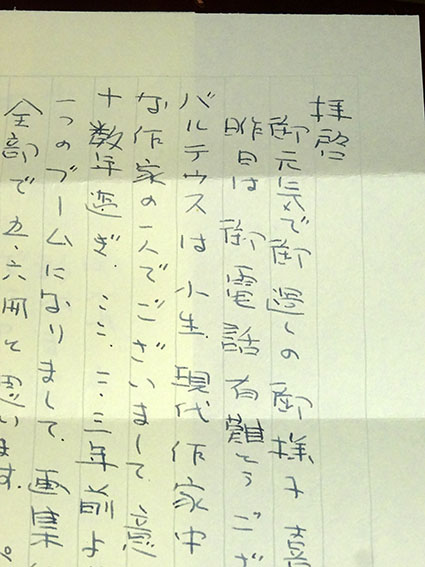 拝啓
御元気で御過しの御様子喜
昨日は御電話有難とうござ
バルテウスは小生.現代作家中
な作家の一人でございまして.
十数年過ぎ.ここ二.三年前よ
一つのブームになりまして.画集
全部で五.六冊と思います.